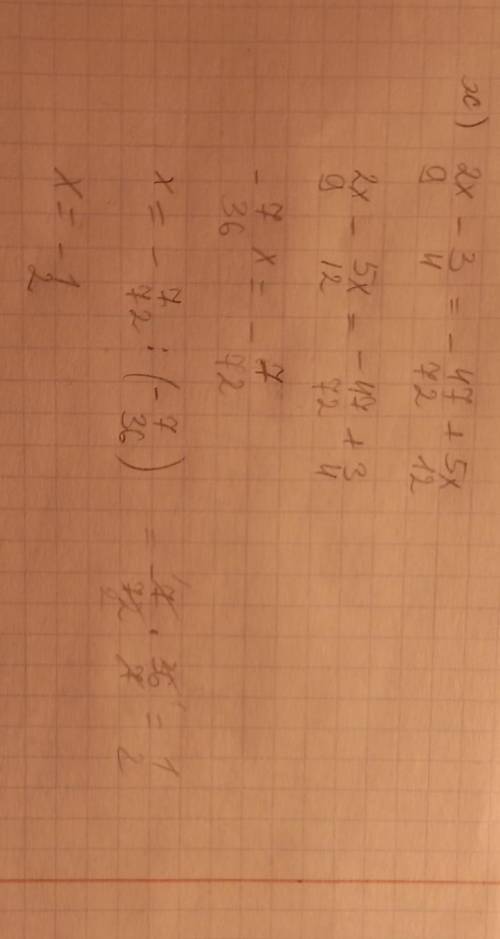 ж) 2x/9 - 3/4 = - 47/72 + 5x/12
2x/9 - 5x/12 = - 47/72 + 3/4
- 7/36 x = - 7/72
x = - 7/72 : (- 7/36) = 7/72 · 36/7 = 1/2
x = - 1/2